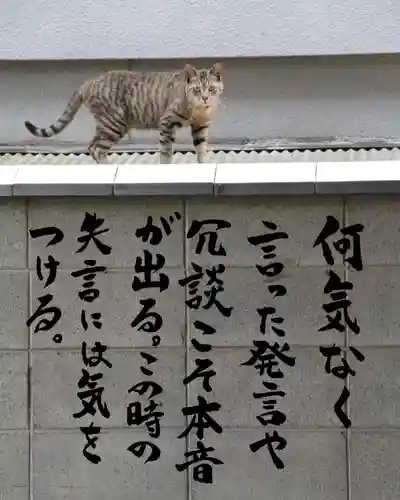 何気なく
言った発言や
冗談こそ本音
が出る。この時の
失言には気を
つける。